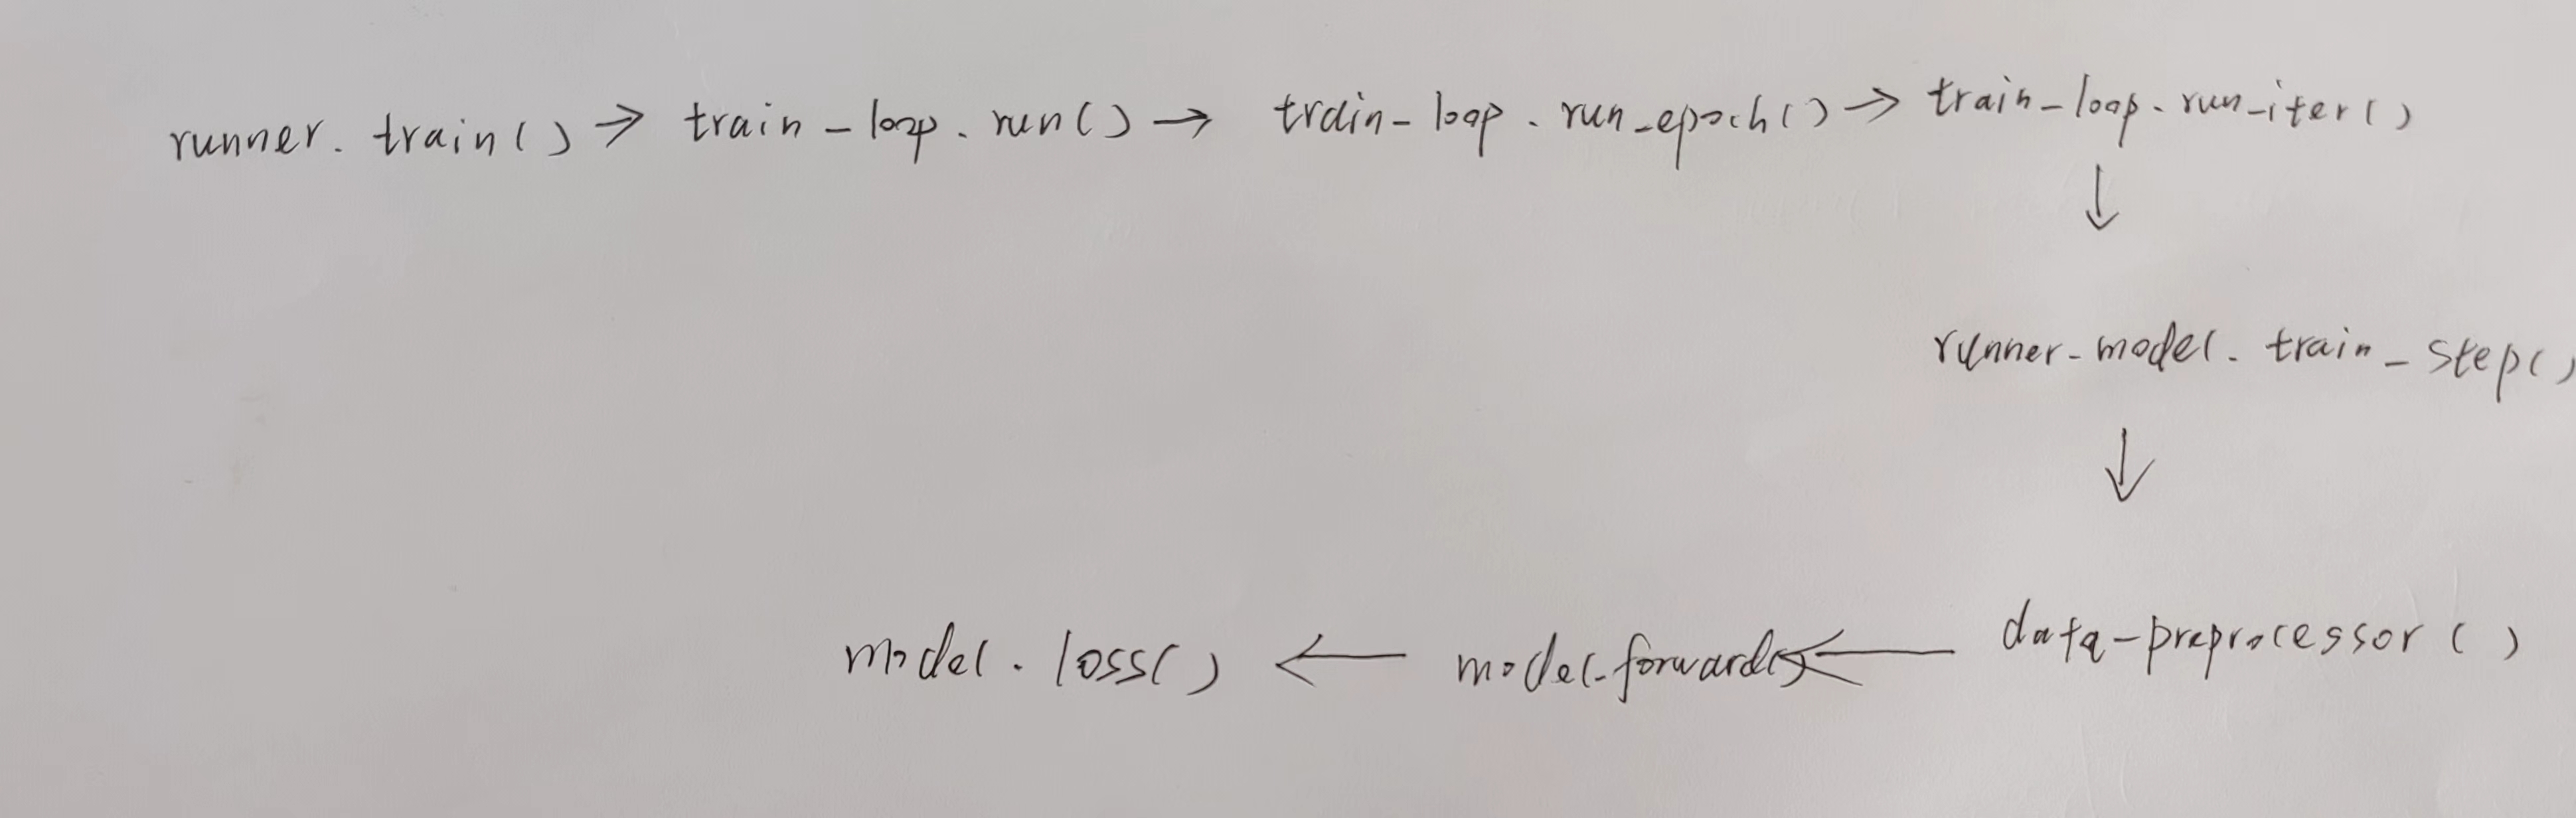 runner. train() → train_loop. run() → train_loop. run_epoch() → train_loop. run_iter()
↓
runner.model. train_step()
↓
model. loss() ← model.forward() ← data_preprocessor ()